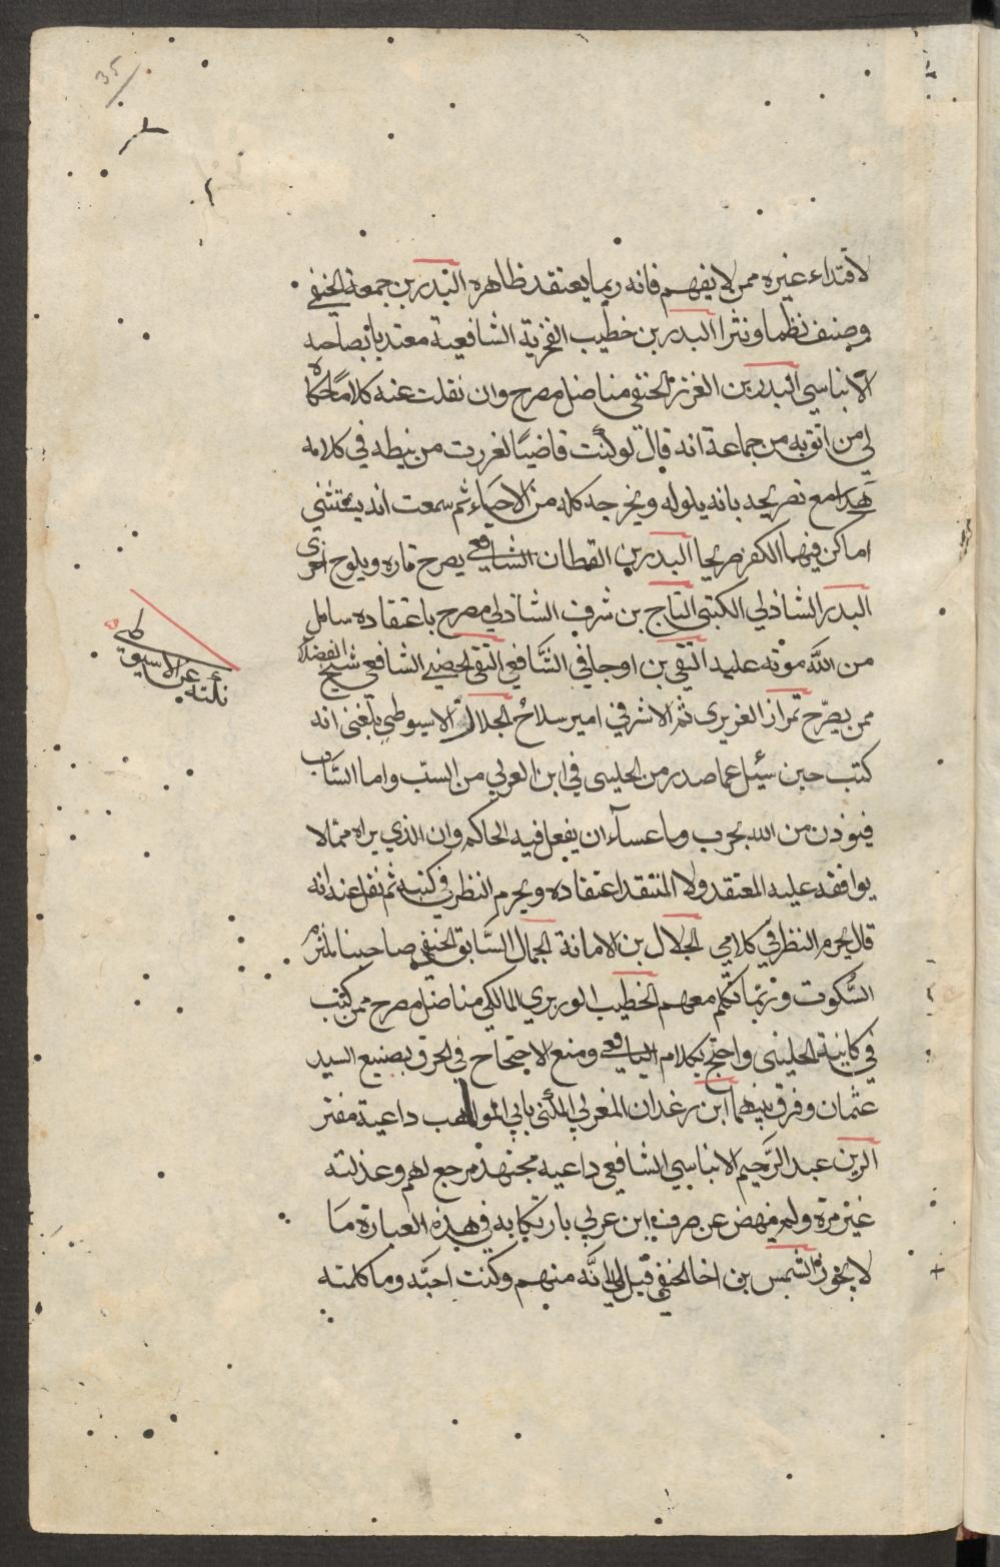 35
لاقتداء غيره ممن لا يفهم فانه ربما يعتقد ظاهره البدر بن جمعة الحنفي
وصنف نظما ونثرا البدر بن خطيب الفخرية الشافعية معتد بابصاحبه
الابناسي البدر بن الغرز الحنفي مناضل مصرح وان نقلت عنه كلاما حكاه
لي من اثق به من جماعة انه قال لو كنت قاضيا لغررت من نيطه في كلامه
هذا مع تصريحه بانه يلوله ويخرجه كله من الاحياء ثم سمعت انه يستثني
اماكن فيها الكفر صريحا البدر بن القطان الشافعي يصرح تاره ويلوح اخرى
البدر الشاذلي الكتبي التاج بن شرف الشاذلي مصرح باعتقاده سامل
من الله موته عليه التقي بن اوجاقي الشافعي التقي الحضني الشافعي شيخ الفضلا
ممن يصرح تمراز العزيزي ثم الاشرفي امير سلاح الجلال الاسيوطي بلغني انه
كتب حين سئل عما صدر من الحليبي في ابن العربي من السب واما الساب
فيوذن من الله بحرب وما عساء ان يفعل فيه الحاكم وان الذي يراه ممالا
يوافقه عليه المعتقد ولا المنتقد اعتقاده ويحرم النظر في كتبه ثم نقل عنه انه
قال يحرم النظر في كلامي الجلال بن الامانة الجمال السابق الحنفي صاحبنا ملتزم
السكوت وربما تكلم معهم الخطيب الوريري المالكي مناضل مصرح ممن كتب
في كاينة الحليبي واحتج بكلام اليافعي ومنع الاحتجاج في الحرق بصنيع السيد
عثمان وفرق بينهما ابن زغدان المغربي المكنى بابي المواهب داعية مفتر
الزين عبد الرحيم الابناسي الشافعي داعيه مجتهد مرجع لهم وعذلته
غير مرة ولم ينهض عن صرف ابن عربي بارتكابه في هذه العبارة ما
لا يجوز الشمس بن اخا الحنفي قيل لي انه منهم وكنت احبه وما كلمته
نكتة عن الاسيوطي